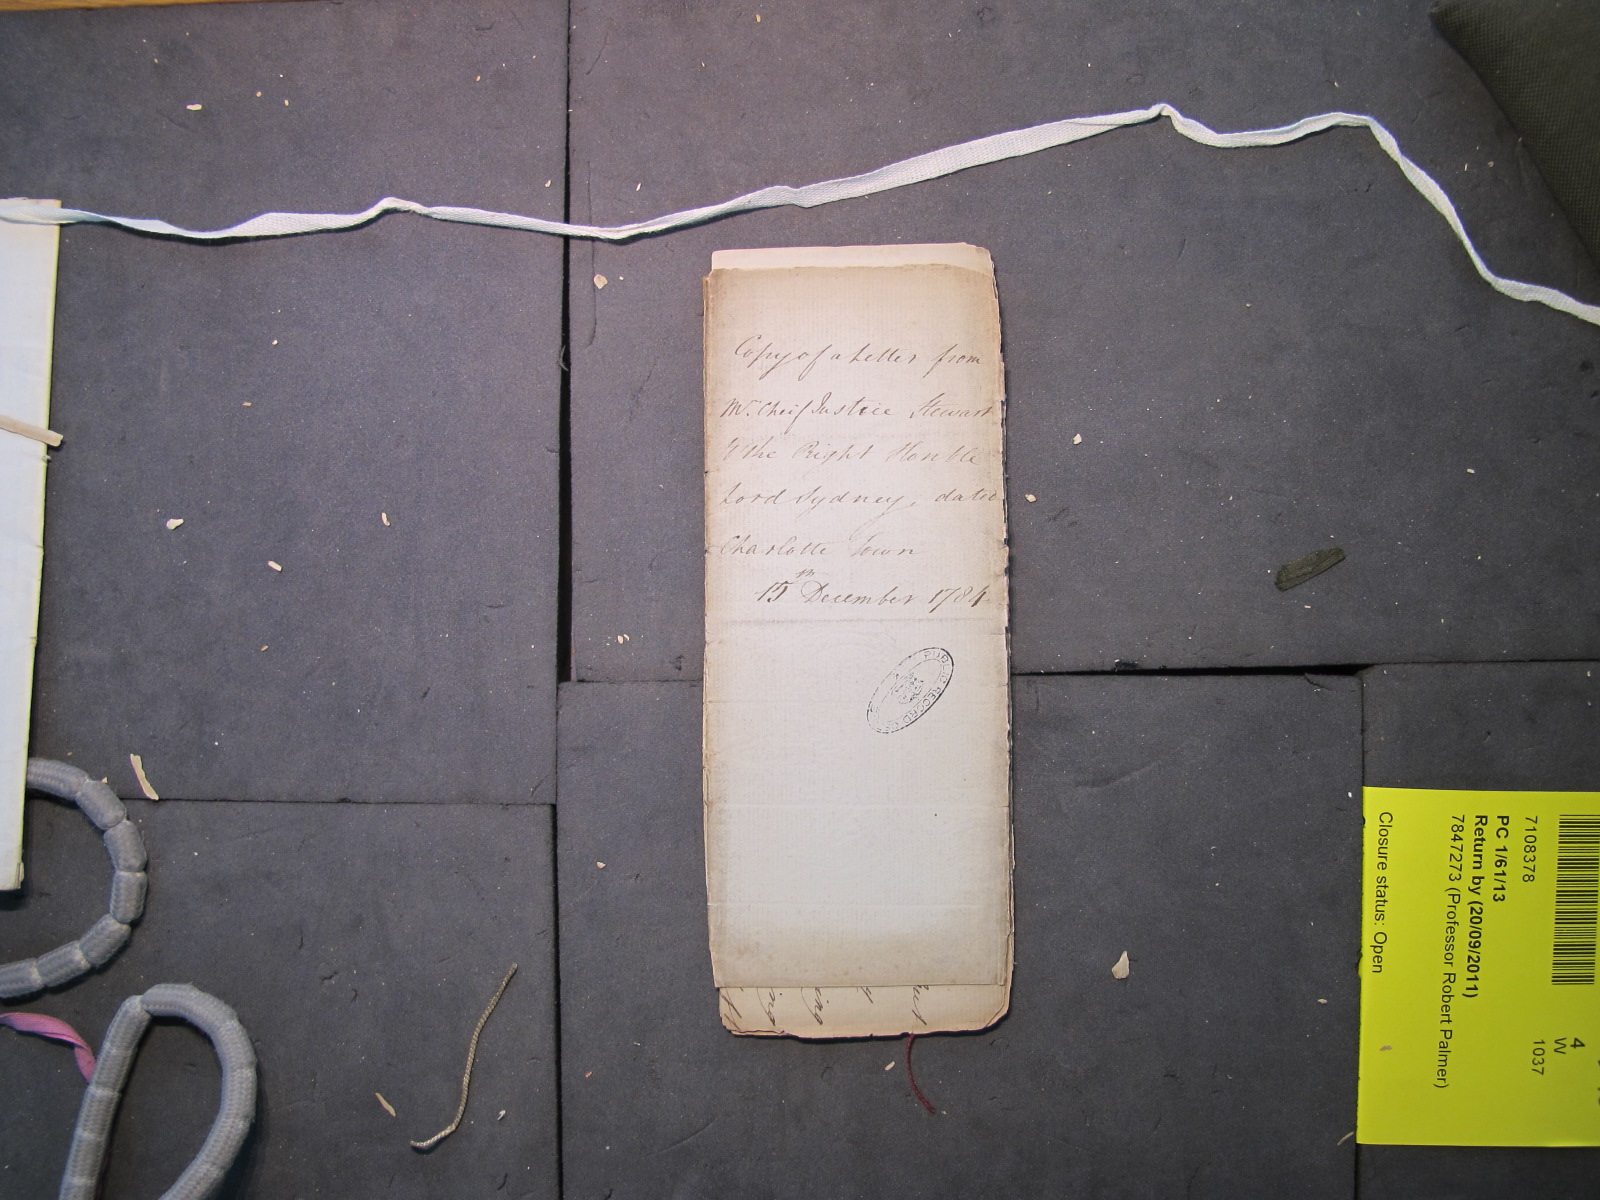 Copy of a Letter from
Mr. Cheif Justice Stewart
to the Right Honble
Lord Sydney, dated
Charlotte Town
15th December 1784
PUBLIC RECORD
7108378
PC 1/61/13
Return by (20/09/2011)
7847273 (Professor Robert Palmer)
Closure status: Open
4
W
1037